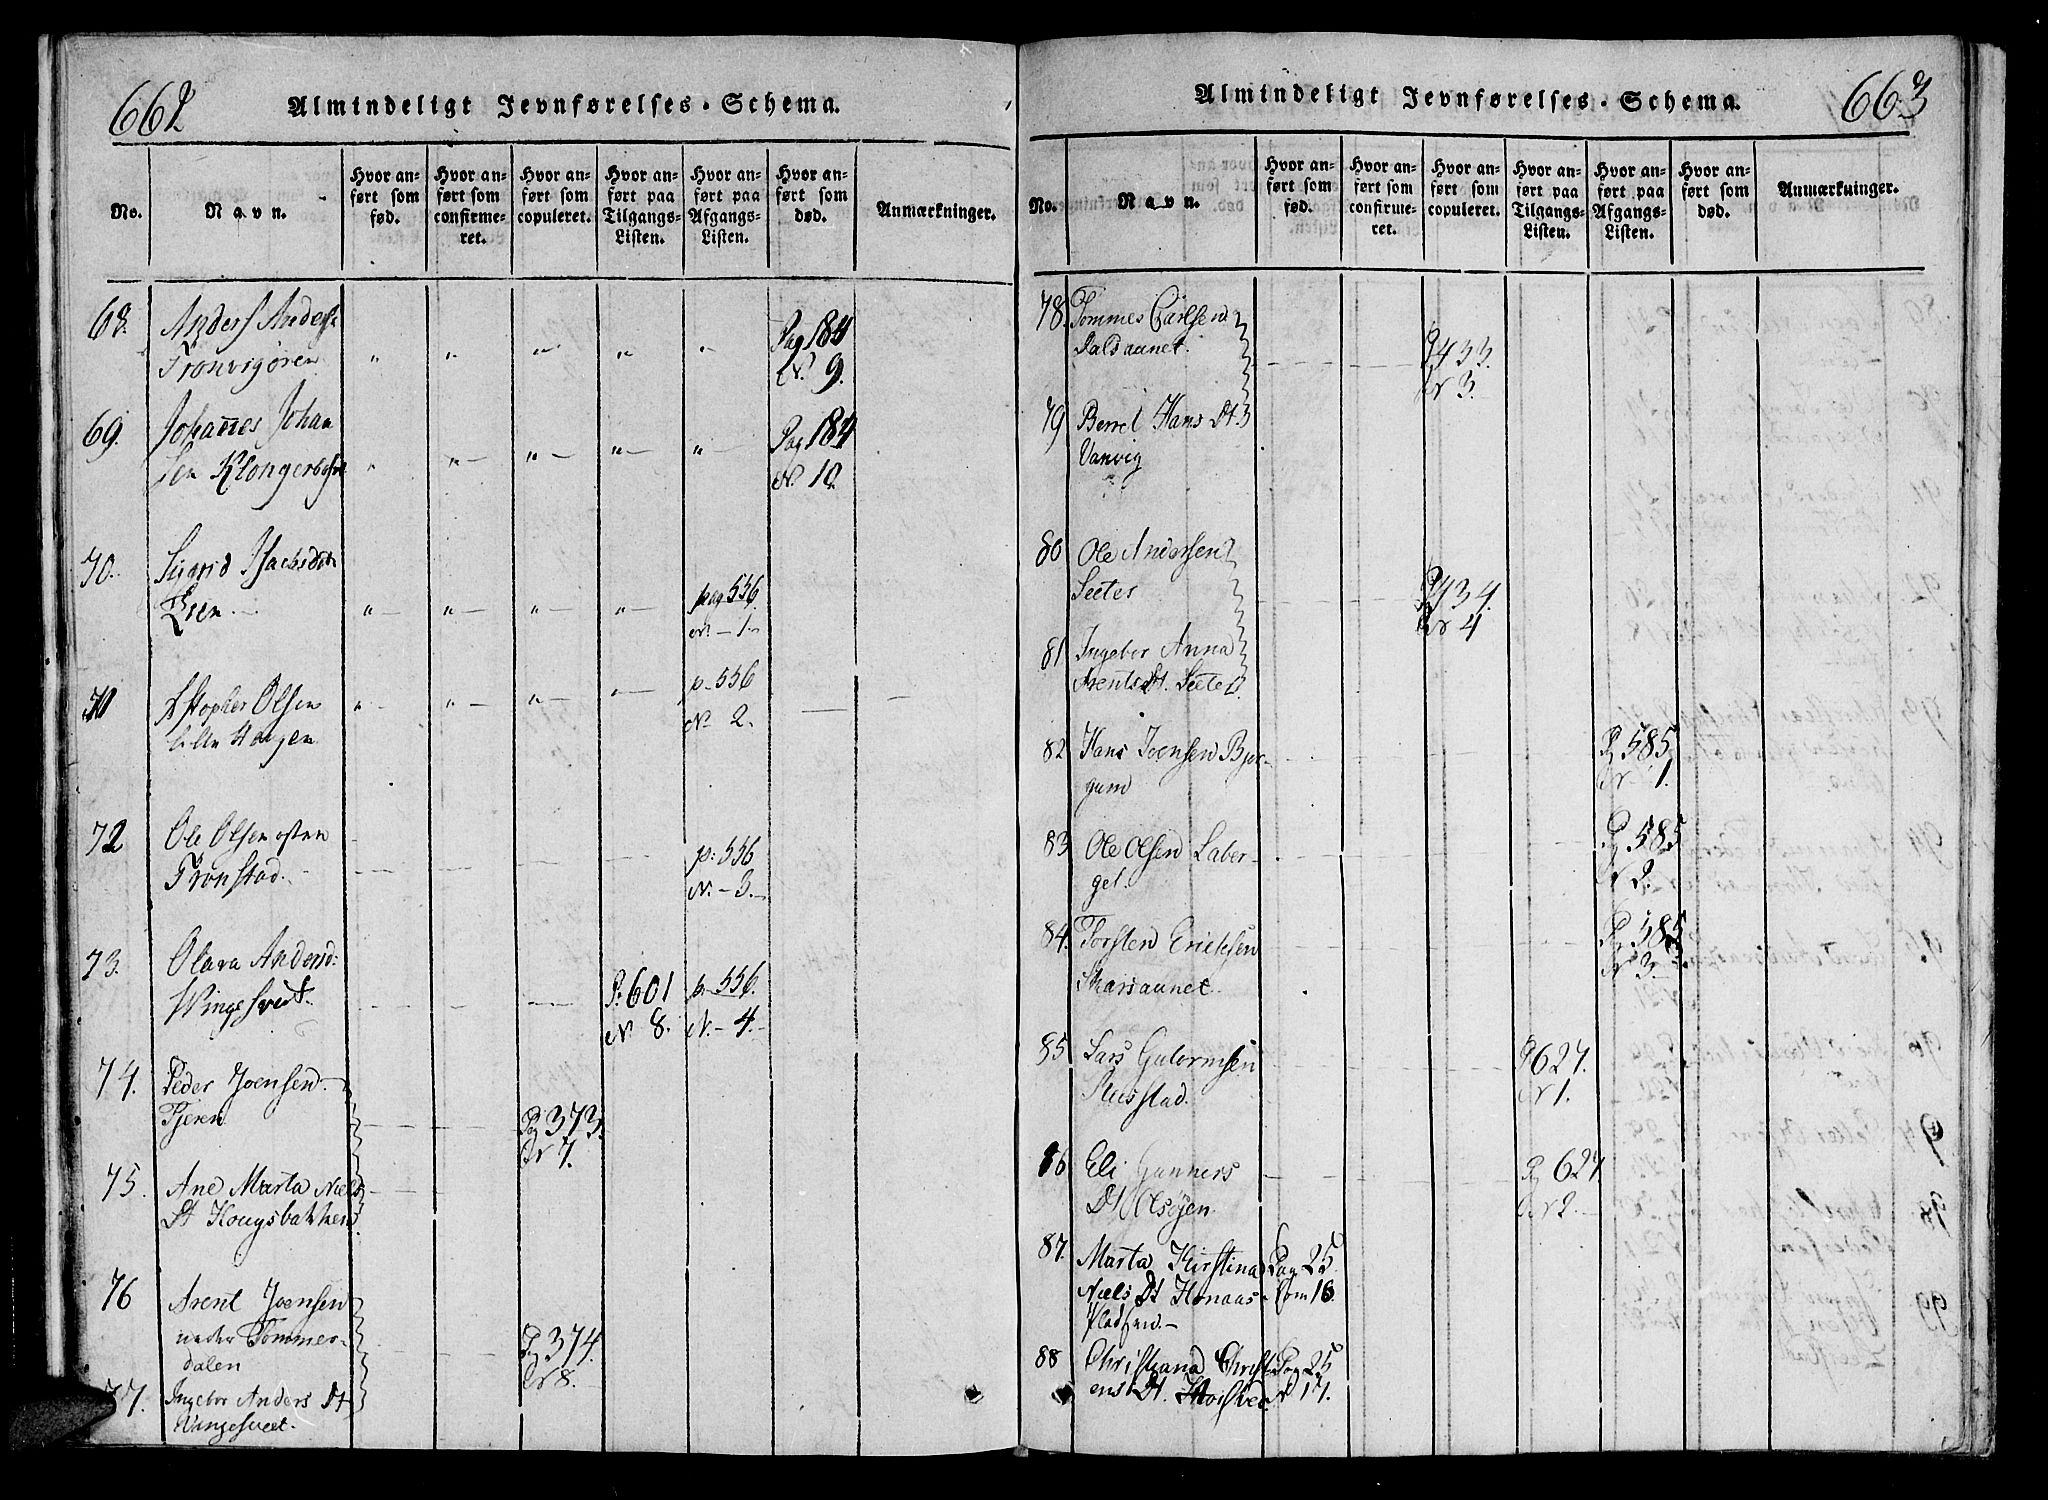 662
Almindeligt Jevnførelses-Schema.
No.
Navn.
Hvor anført som fød.
Hvor anført som confirmeret.
Hvor anført som copuleret.
Hvor anført paa Tilgangs-Listen.
Hvor anført paa Afgangs-Listen.
Hvor anført som død.
Anmærkninger.
68. Anders Anders
Tronvigøren " " " " " Pag 184
N. 9.
69. Johannes Johan
sen " " " " " Pag 184
N. 10.
70. Sigrid
" " " " pag 556.
N. 1.
71 Olsen " " " " p. 556
Haagen N. 2.
72 Ole Olsen østen
Tronstad. p. 556
N. 3.
73. Olava
P. 601 p. 556.
N. 8. N. 4.
74. Peder Joensen
Tjeren Pag 373.
Nr 7.
75. Ane Marta Niels
Dt Hougsbakken
76 Arent Joensen
neder Tommer-
dalen Pag 374.
Nr 8.
77. Ingebor Anders Dt
663
Almindeligt Jevnførelses-Schema.
No.
Navn.
Hvor anført som fød.
Hvor anført som confirmeret.
Hvor anført som copuleret.
Hvor anført paa Tilgangs-Listen.
Hvor anført paa Afgangs-Listen.
Hvor anført som død.
Anmærkninger.
78. Tommes Carlsen
Dalsaunet. P 433.
Nr 3.
79 Berrel Hans Dt
Vanvig
80 Ole Andersen
Seeter Pag 434.
Nr 4
81 Ingebor Anna
Arents Dt. Seeter
82 Hans Joensen Bjør-
gum Pag 585
Nr 1.
83 Ole Olsen Laber-
get. Pag 585
Nr 2.
84. Torsten Ericksen
Skarsaunet. Pag 585
Nr 3.
85 Lars Gutormsen
P 627.
Nr 1.
86 Eli Gunners
Dt Olsøyen. Pag 627.
Nr 2.
87. Marta Kirstina Pag 25
Niels Dt Honaas- Nom 16.
Pladsen.
88 Christiana Pag 25
ens Dt. N 17.